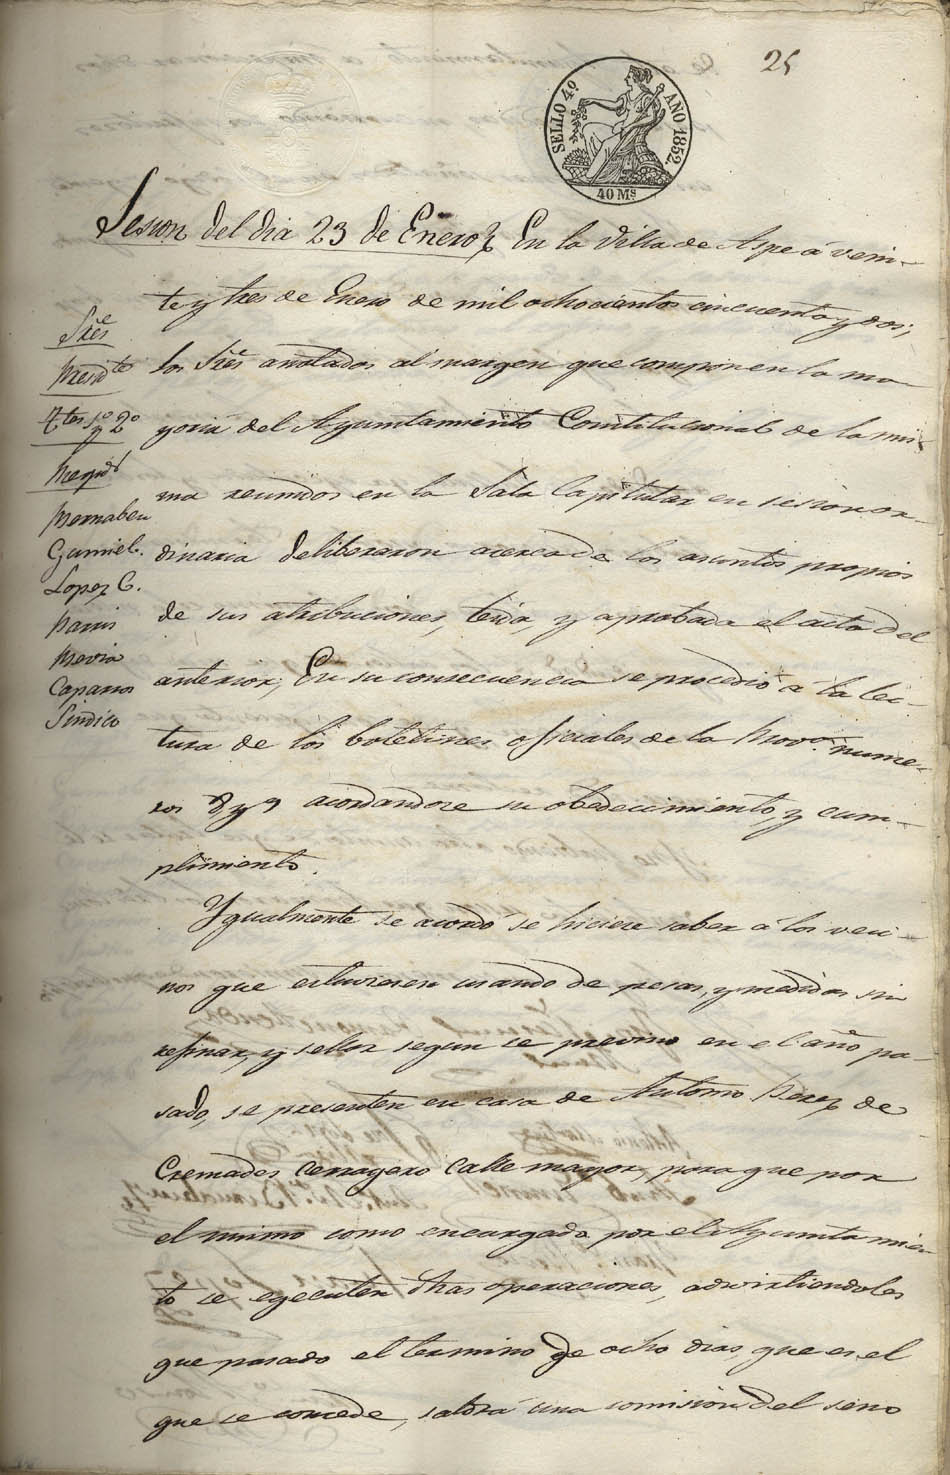 25
SELLO 4º. AÑO 1852.
40 Ms
Sesion del dia 23 de Enero En la Villa de Aspe á vein-
te y tres de Enero de mil ochocientos cincuenta y dos;
los Sres anotados al margen que componen la ma
yoria del Ayuntamiento Constitucional de la mis
ma reunidos en la Sala Capitular en sesion or-
dinaria deliberaron acerca de los asuntos propios
de sus atribuciones, leida, y aprobada el acta del
anterior; En su consecuencia se procedió á la lec-
tura de los boletines oficiales de la Prova. nume-
ros 8 y 9 acordandose su obedecimiento, y cum-
plimiento.
Ygualmente se acordó se hiciere saber á los veci-
nos que estuviesen usando de pesas, y medidas sin
refinar, y sellar segun se previno en el año pa-
sado, se presenten en casa de Antonio Perez de
Cremades cerragero Calle mayor, para que por
el mismo como encargado por el Ayuntamien-
to se ejecuten dhas operaciones, advirtiendoles
que pasado el termino de ocho dias, que es el
que se concede, saldrá una comision del seno
Sres
Presidte
Ttes 1º y 2º
Bernabeu
Gumiel.
Lopez C.
Parris
Mevia
Caparros
Sindico